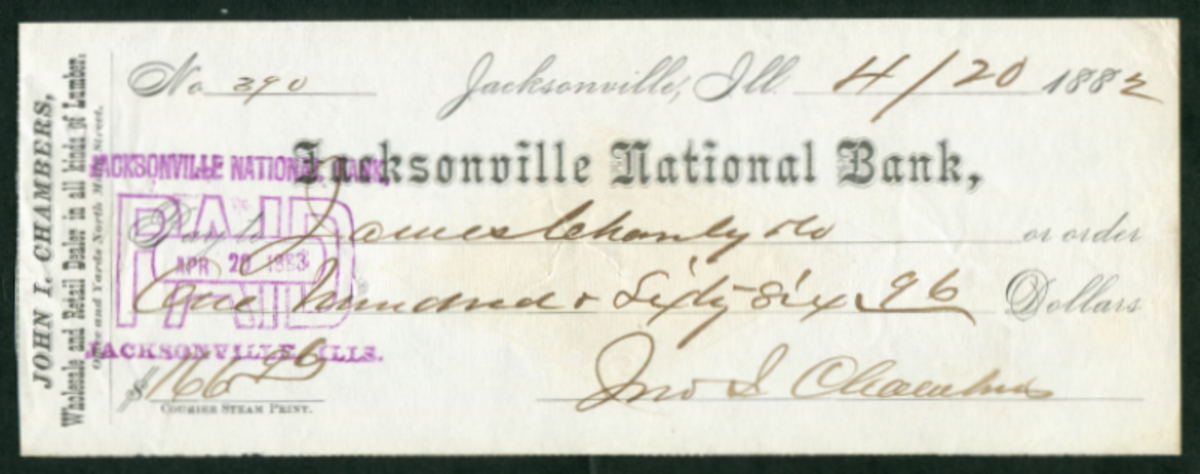 JOHN I. CHAMBERS,
Wholesale and Retail Dealer in all kinds of Lumber.
Office and Yards North Main Street.
No. 390 Jacksonville, Ill. 4/20 1882
Jacksonville National Bank,
JACKSONVILLE NATIONAL BANK,
PAID
Pay to James & Co or order
APR 20 1883
One hundred & Sixty six 96 Dollars
JACKSONVILLE, ILLS.
$166 96
Jno I Chambers
COURIER STEAM PRINT.